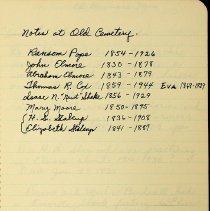 Notes at Old Cemetery.
Ransom Pope 1854-1926
John Elmore 1830-1878
Abraham Elmore 1843-1879
Thomas R. Cox 1859-1944 Eva
Isaac N. "Bud" 1856-1929
Mary Moore 1850-1895
H. S. Stalcup 1836-1908
Elizabeth Stalcup 1841-1887